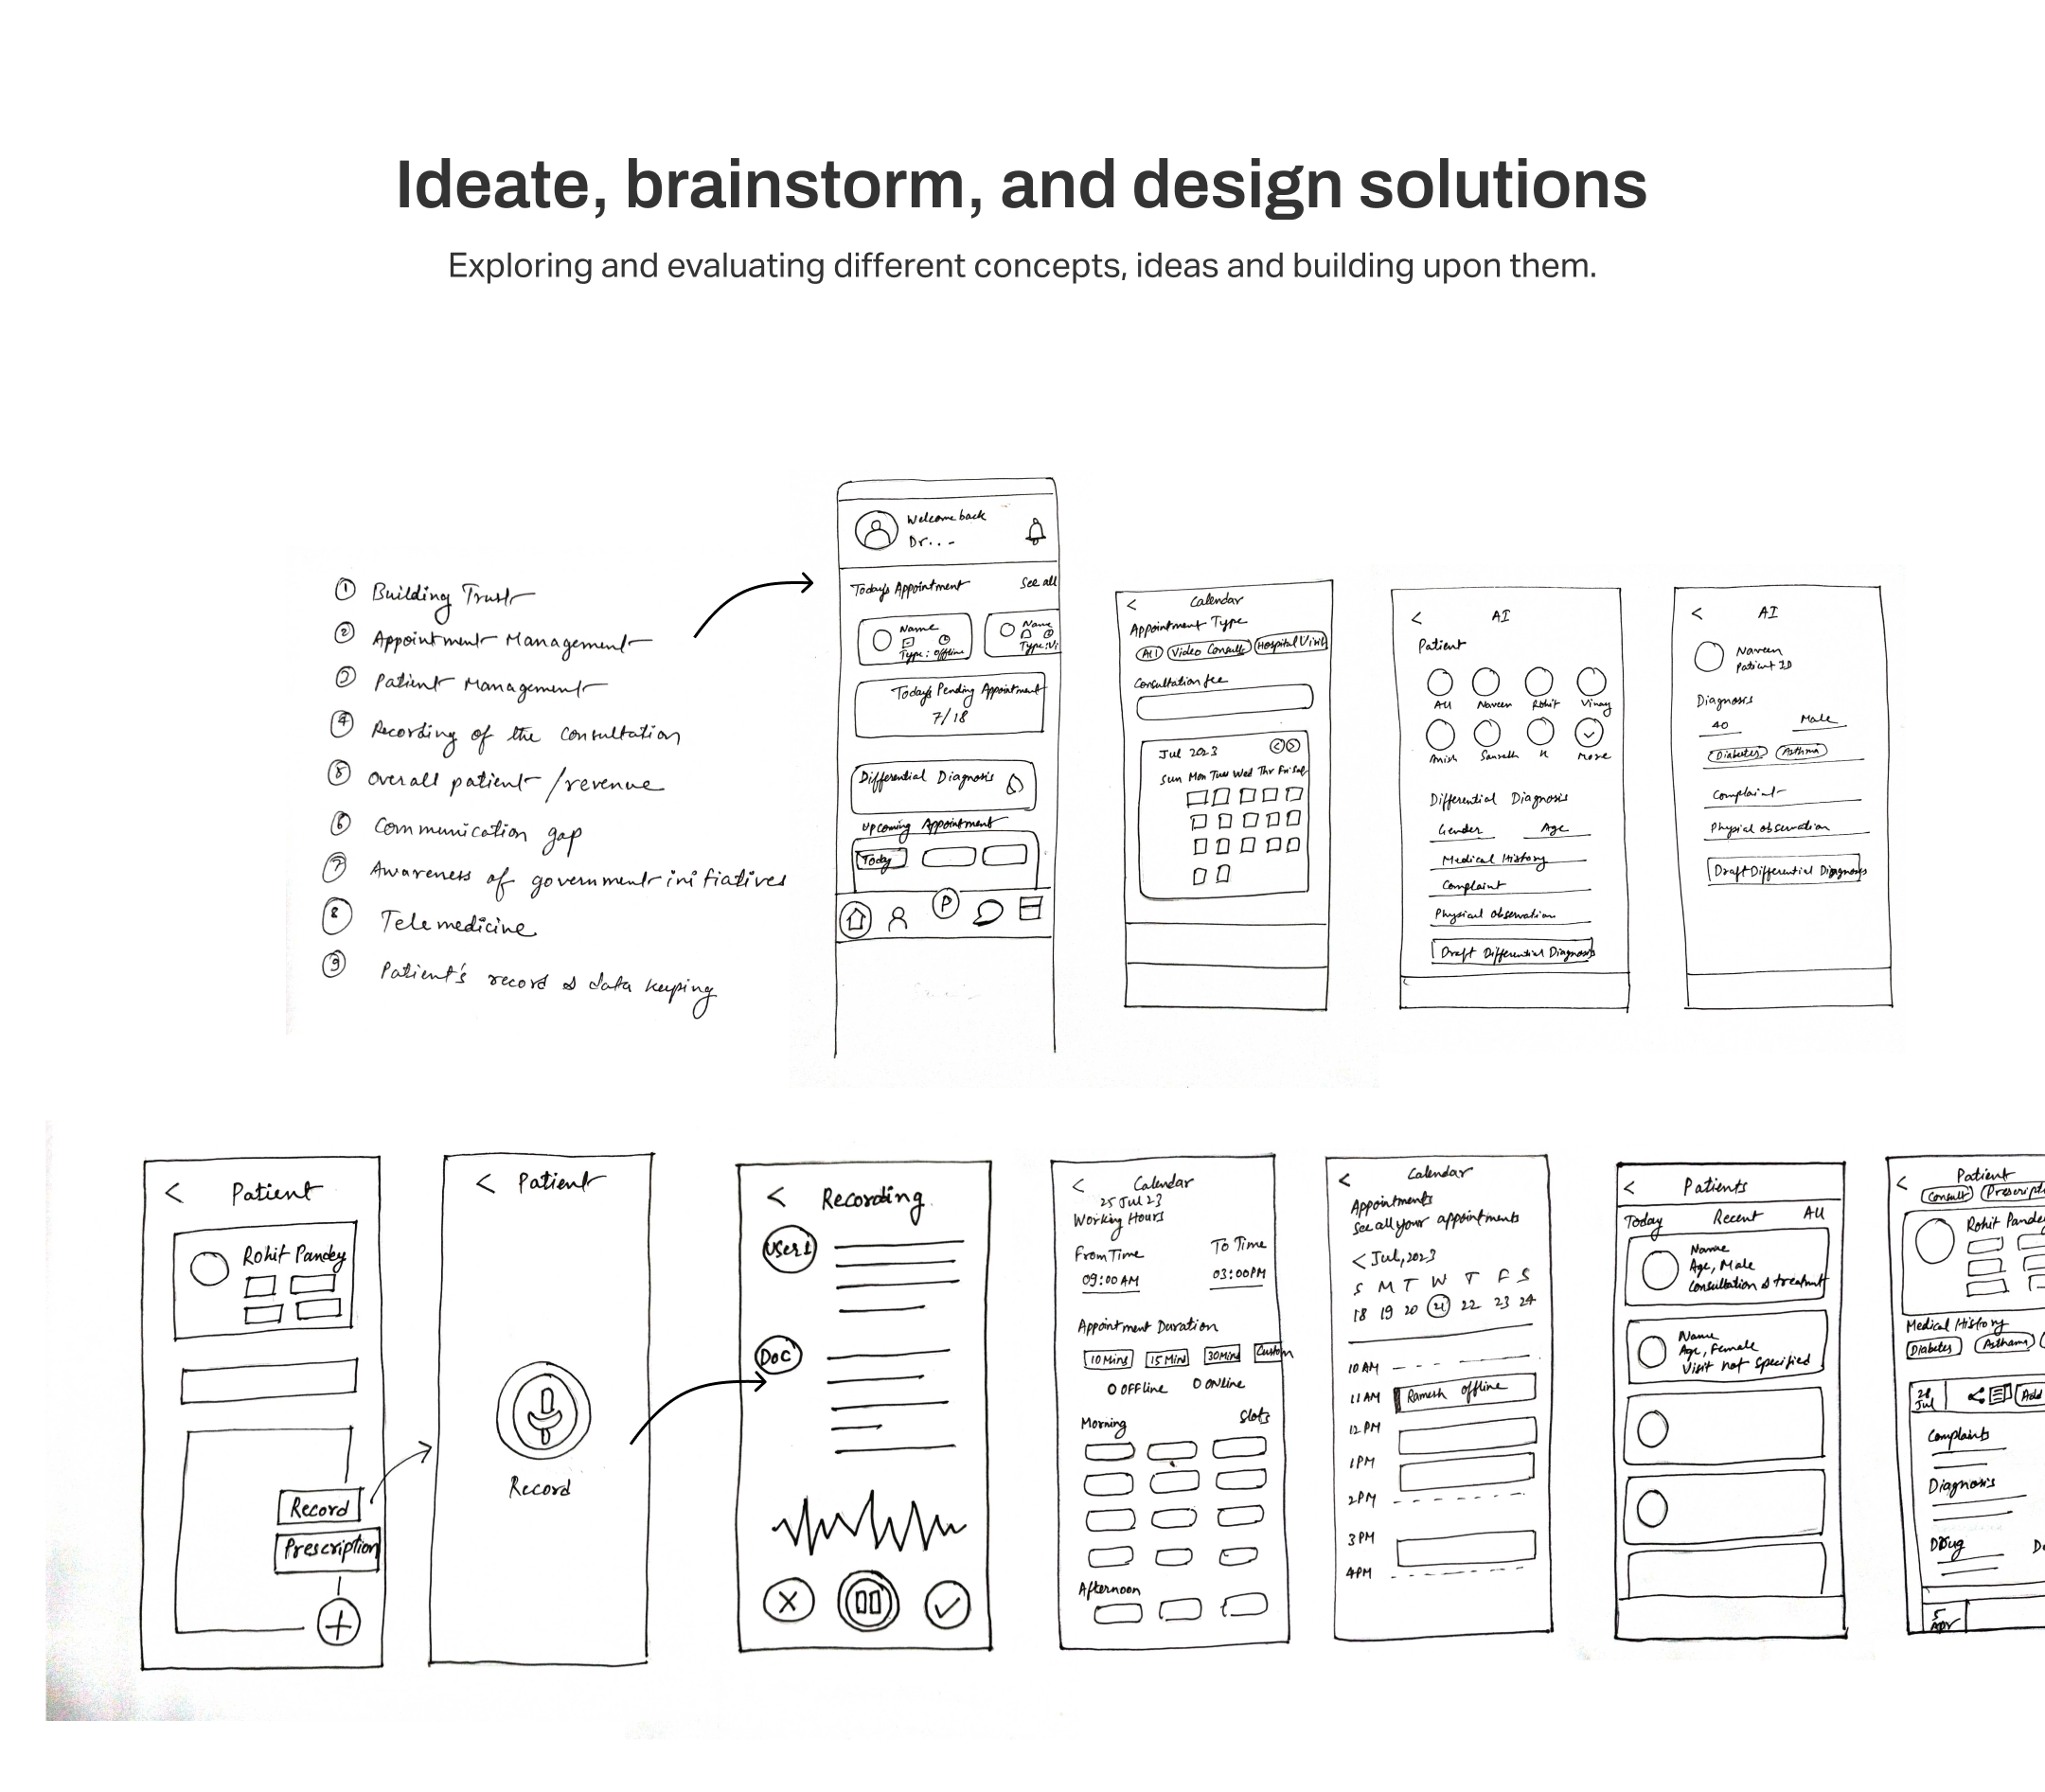 Ideate, brainstorm, and design solutions
Exploring and evaluating different concepts, ideas and building upon them.
① Building Trust
② Appointment Management
③ Patient Management
④ Recording of the Consultation
⑤ Overall patient / revenue
⑥ Communication gap
⑦ Awareness of government initiatives
⑧ Telemedicine
⑨ Patient's record & data keeping
Welcome back
Dr...-
Today's Appointment See all
Name
Type: offline
Name
Type: Vi
Today's Pending Appointment
7/18
Differential Diagnosis
Upcoming Appointment
Today
P
< Calendar
Appointment Type
All Video Consult Hospital Visit
Consultation fee
Jul 2023 < >
Sun Mon Tue Wed Thr Fri Sat
< AI
Patient
All Naveen Rohit Vinay
Anish More
Differential Diagnosis
Gender Age
Medical History
Complaint
Physical Observation
Draft Differential Diagnosis
< AI
Naveen
Patient ID
Diagnosis
40 Male
Diabetes Asthma
Complaint
Physical observation
Draft Differential Diagnosis
< Patient
Rohit Pandey
Record
Prescription
+
< Patient
Record
< Recording
User 1
Doc
< Calendar
25 Jul 23
Working Hours
From Time To Time
09:00 AM 03:00 PM
Appointment Duration
10 Mins 15 Mins 30 Mins Custom
O OFFline O Online
Morning Slots
Afternoon
< Calendar
Appointments
See all your appointments
< Jul, 2023
S M T W T F S
18 19 20 21 22 23 24
10 AM
11 AM Ramesh offline
12 PM
1 PM
2 PM
3 PM
4 PM
< Patients
Today Recent All
Name
Age, Male
Consultation & treatment
Name
Age, Female
Visit not specified
< Patient
Consult Prescripti
Rohit Pande
Medical History
Diabetes Asthama
28
Jul Add
Complaints
Diagnosis
Drug Do
5
Apr